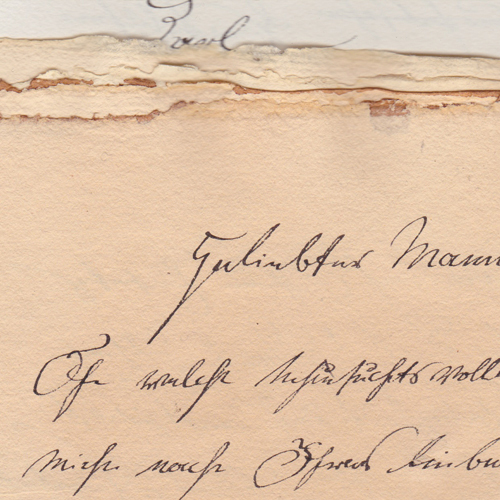 Karl
Geliebter Mann
Oh welch sehnsuchtsvolle
mich nach Ihrer Liebe